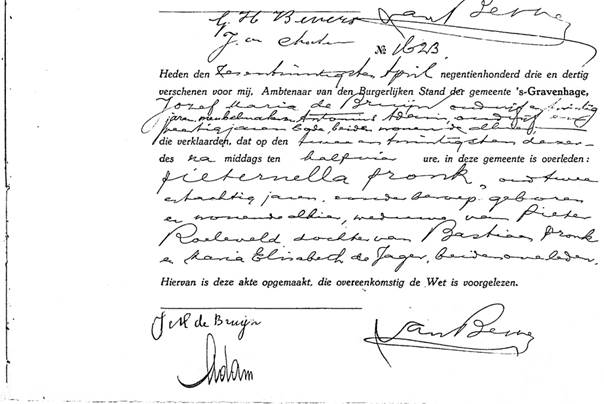 G H Bevers
J. v
№ 1623
Heden den zesentwintigsten April negentienhonderd drie en dertig
verschenen voor mij, Ambtenaar van den Burgerlijken Stand der gemeente 's-Gravenhage,
Jozef Maria de Bruijn oud vijf en twintig
jaren meubelmaker Antonius Adam, oud vijf en
veertig jaren beiden wonende alhier
die verklaarden, dat op den twee en twintigsten dezer
des na middags ten half vier ure, in deze gemeente is overleden:
Pieternella Pronk, oud twee
en tachtig jaren, zonder beroep geboren
en wonende alhier, weduwe van Pieter
Roeleveld dochter van Bastiaan Pronk
en Maria Elisabeth de Jager, beiden overleden.
Hiervan is deze akte opgemaakt, die overeenkomstig de Wet is voorgelezen.
J M de Bruijn
Adam